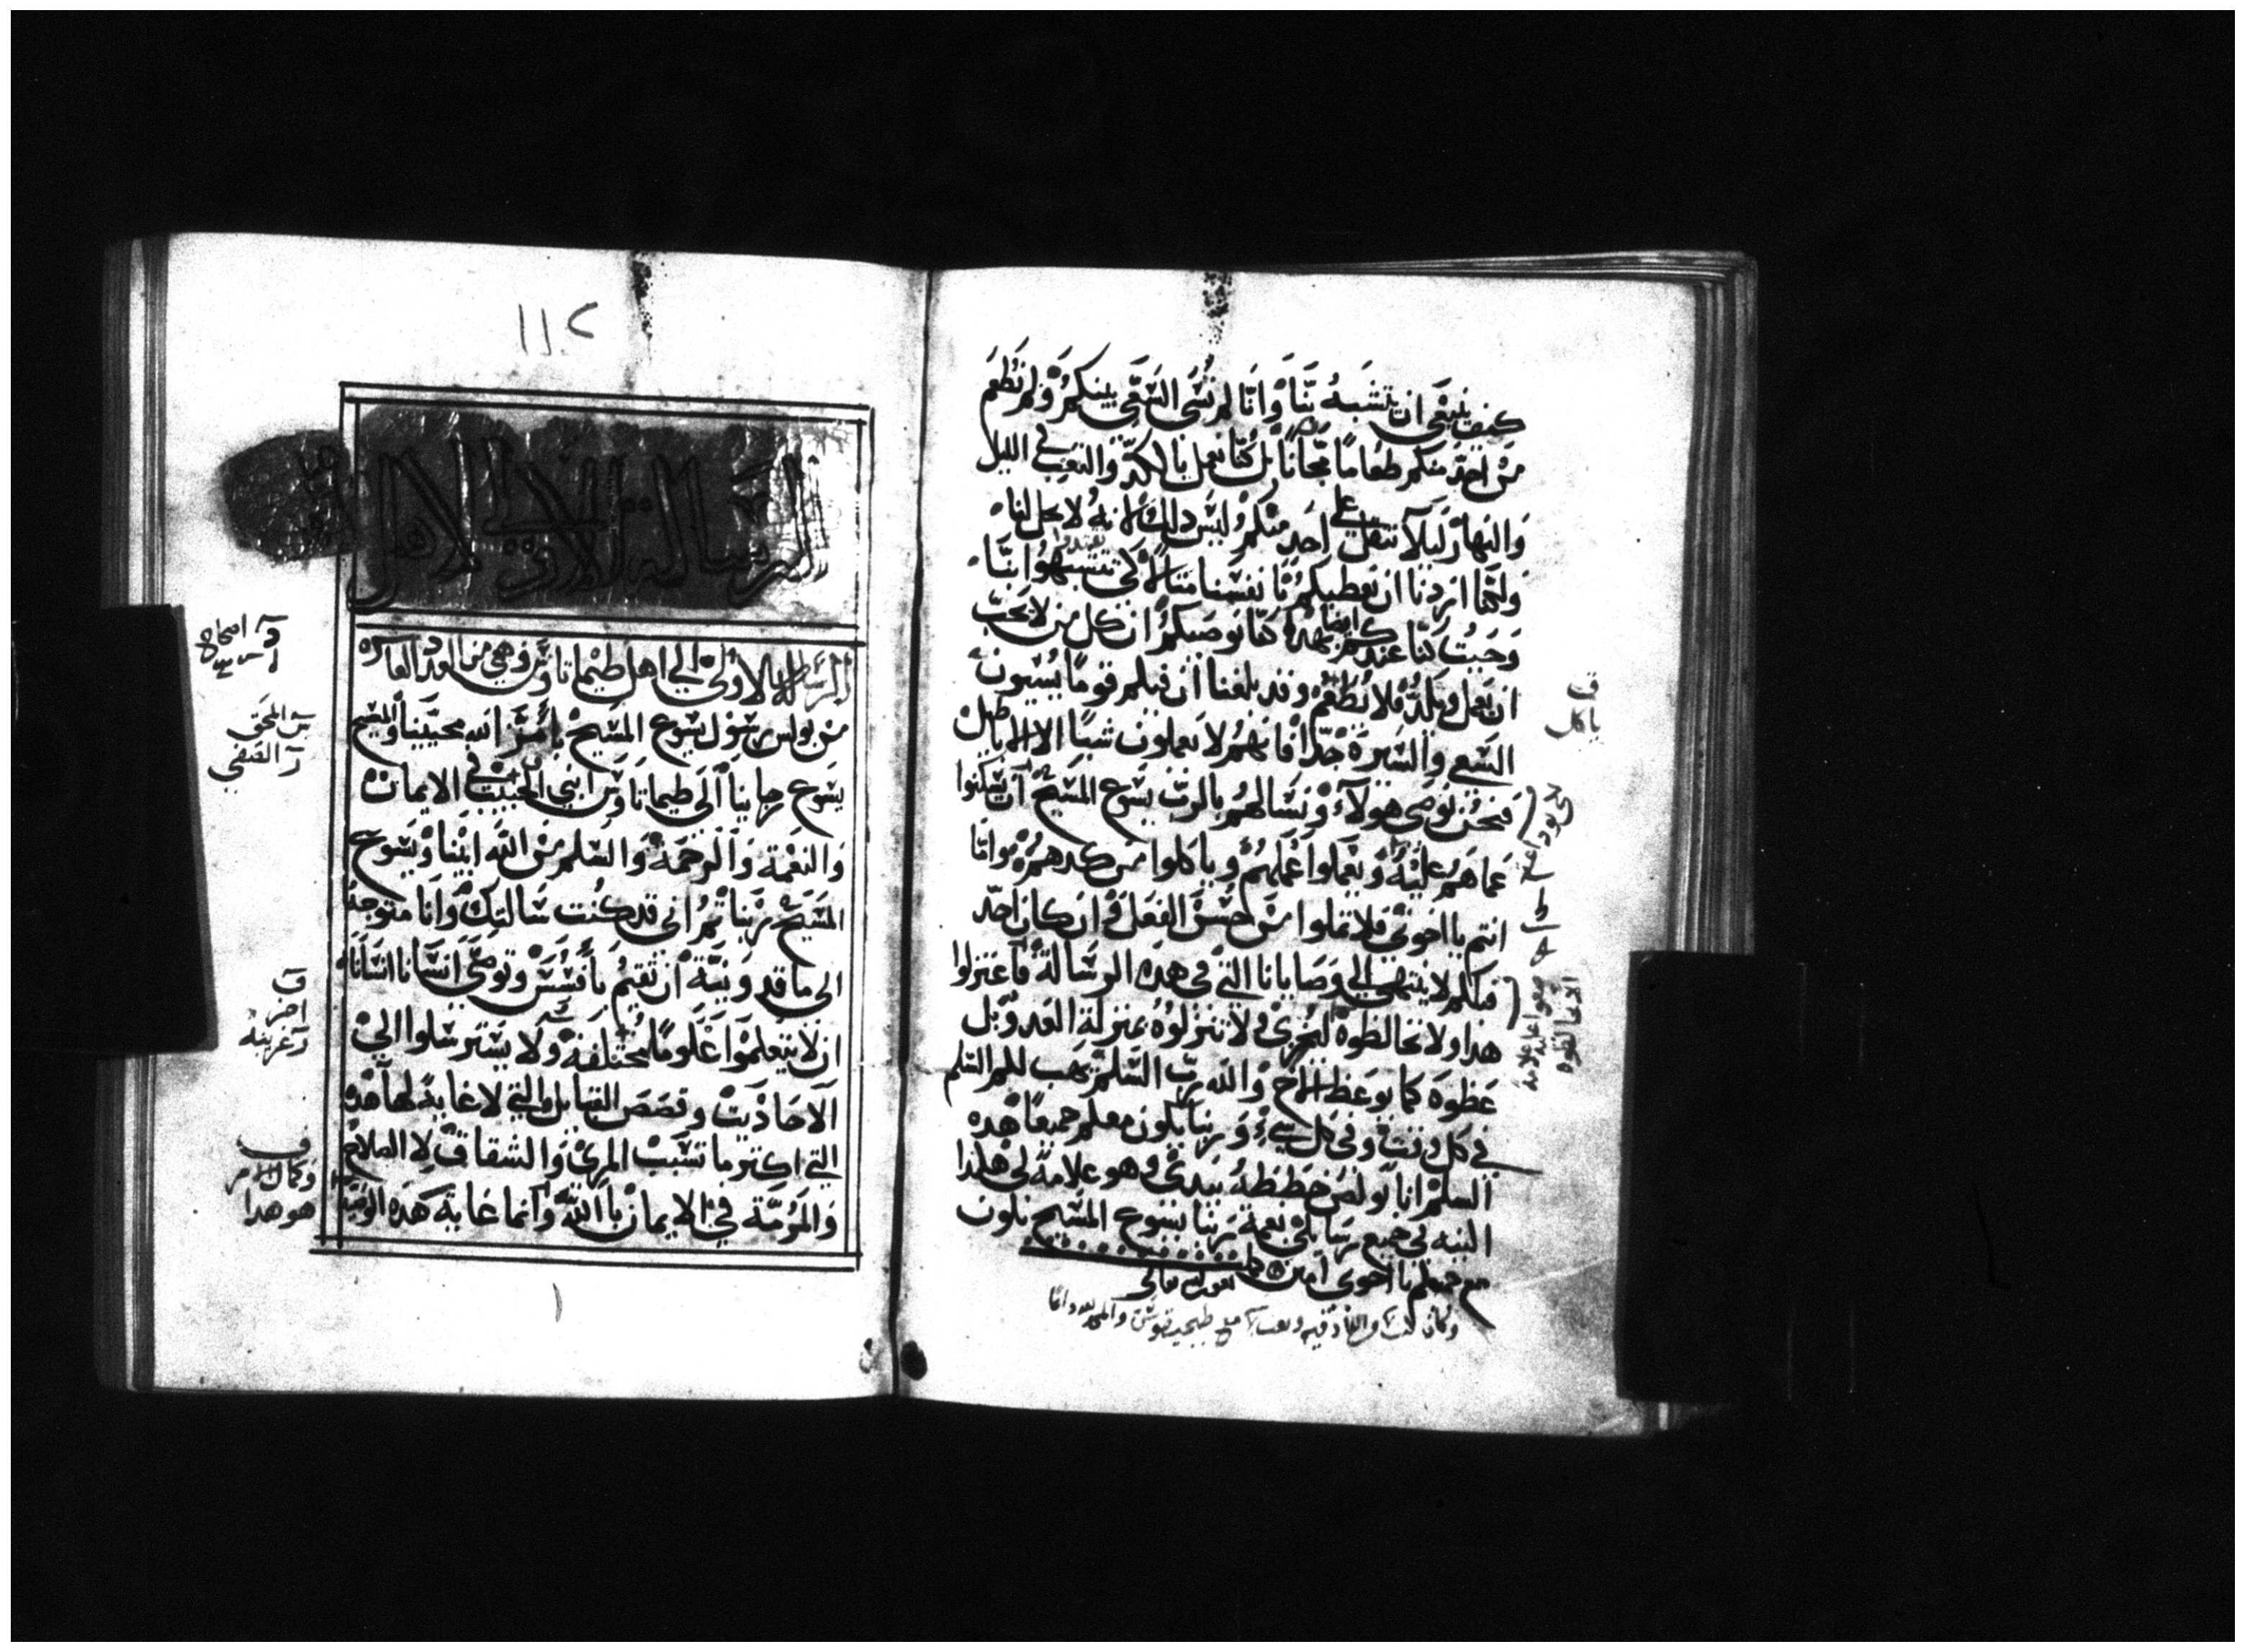 كيف ينبغي ان يتشبه بنا وانا لم نسئ السعي بينكم ولم نطعم
من احد منكم طعاما مجانا بل كنا نعمل بالكد والتعب في الليل
والنهار ليلا نثقل على احد منكم وليس ذلك لانه لا يحل لنا
ولكنا اردنا ان نعطيكم بانفسنا مثالا لكي تتشبهوا بنا
وحيث كنا عندكم بهدا كنا نوصيكم ان كل من لا يحب
ان يعمل ويكد فلا يطعم وقد بلغنا ان فيكم قوما يسيون
السعي والسيرة جدا فانهم لا يعملون شيا الا الاباطيل
فنحن نوصي هولاء ونسالهم بالرب يسوع المسيح ان يسكنوا
عما هم عليه ويعملوا عملهم وياكلوا من كدهم واما
انتم يا اخوتي فلا تملوا من حسن الفعل وان كان احد
فيكم لا ينتهي الي وصايانا التي في هده الرسالة فاعتزلوا
هدا ولا تخالطوه لكي يخزى ولا تنزلوه بمنزلة العدو بل
عظوه كما يوعظ الاخ والله رب السلم يهب لكم السلم
في كل وقت وفي كل شيء وربنا يكون معكم جميعا هده
السلم انا بولص خططته بيدي وهو علامة لي هكدا
اكتبه في جميع رسايلي نعمة ربنا يسوع المسيح تكون
مع جميعكم يا اخوتي امين
بعون الله تعالى
ف
ياكل
١١٢
الرسالة الاولي لاهل
الرسالة الاولي الي اهل طيماتاوس وهي من العدد العاشرة
من بولس رسول يسوع المسيح بامر الله محيينا والمسيح
يسوع رجاينا الي طيماتاوس ابني الحبيب في الايمان
والنعمة والرحمة والسلم من الله ابينا ويسوع
المسيح ربنا ثم اني قد كنت سالتك وانا متوجه
الى ماقدونية ان تقيم بافسس وتوصي انسانا انسانا
ان لا يتعلموا علوما مختلفة ولا يسترسلوا الي
الاحاديث وقصص القبايل التي لا غاية لها هده
التي اكثر ما تسبب المري والشقاق لا الصلاح
والمرمة في الايمان بالله وانما غاية هده الوصية
ف
هو هدا